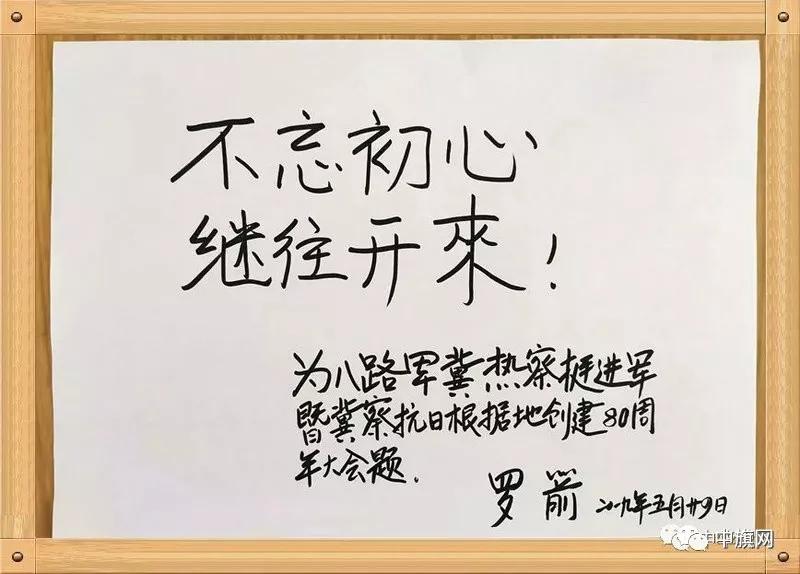 不忘初心
继往开來！
为八路军冀热察挺进军
暨冀察抗日根据地创建80周
年大会题.
罗箭 二〇一九年五月廿9日
中旗网